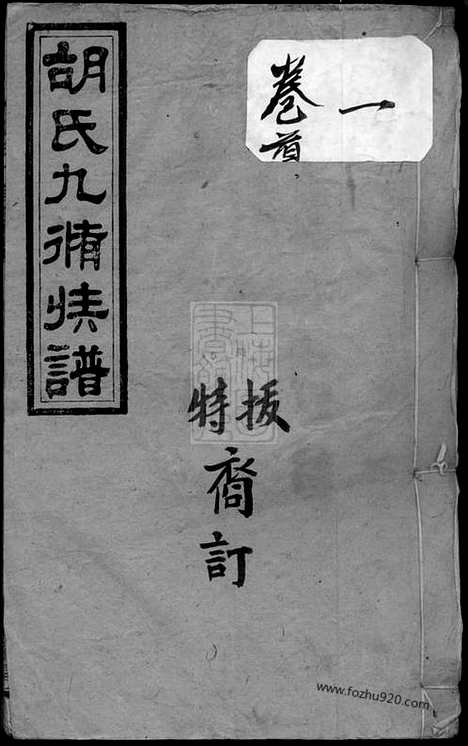 一
卷首
胡氏九脩族譜
特拔
裔訂
www.fozhu920.com